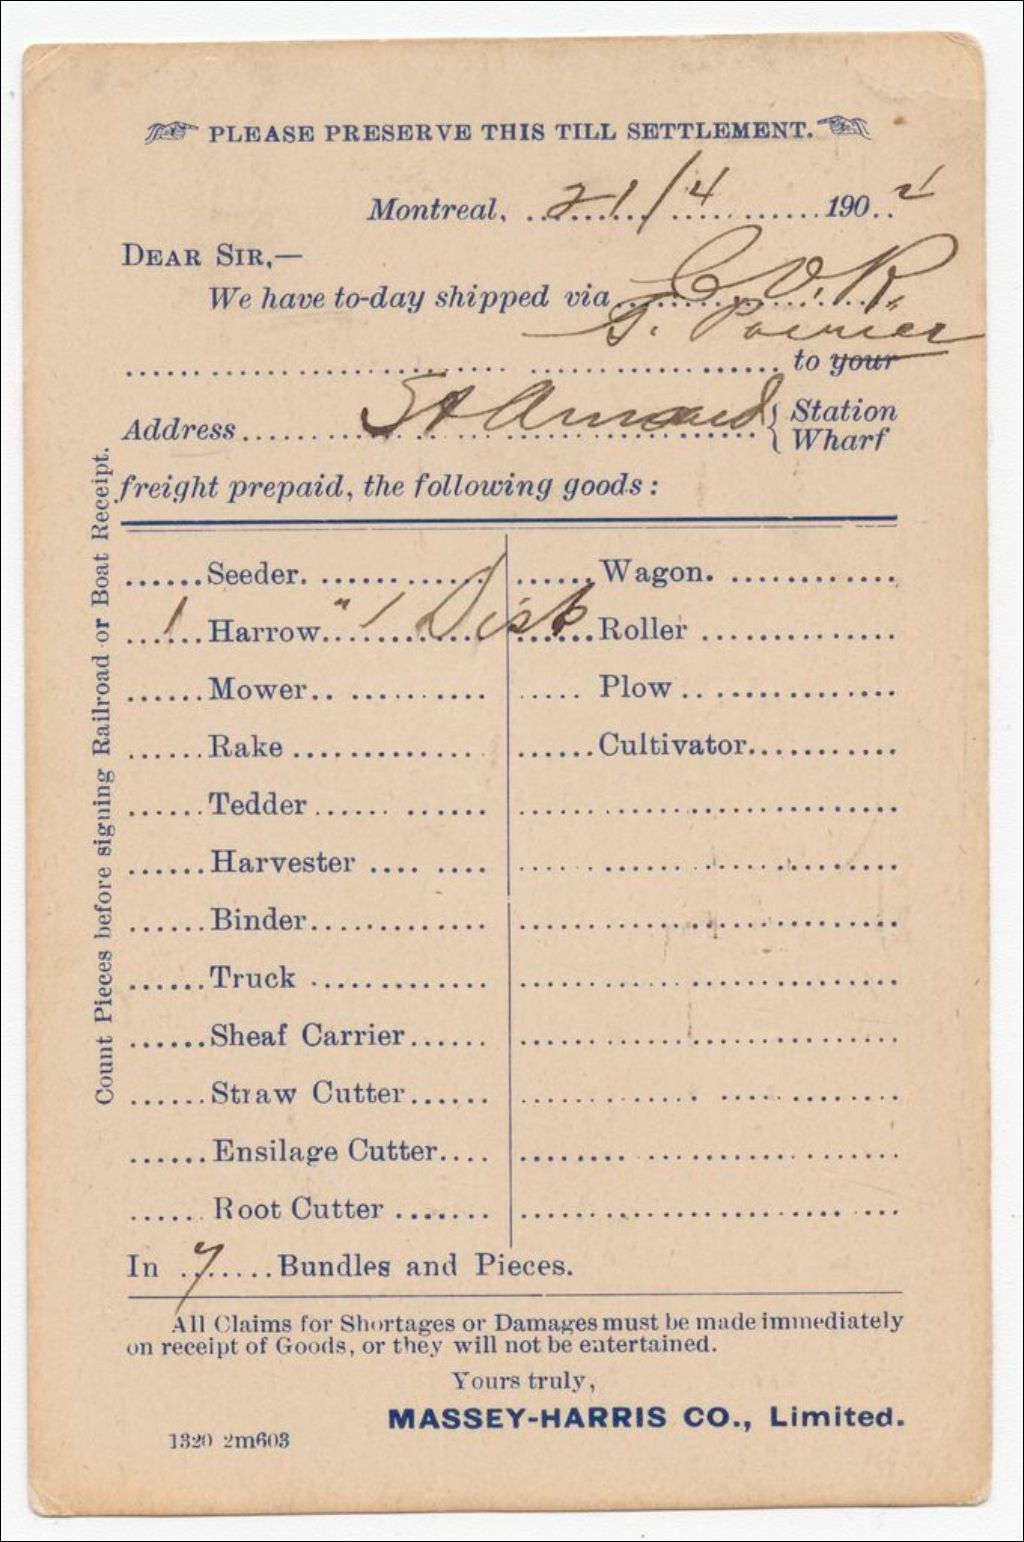 PLEASE PRESERVE THIS TILL SETTLEMENT.
Montreal, 21/4 1904
DEAR SIR,—
We have to-day shipped via C.V.R.
G. Poirier
to your
Address St Armand { Station
Wharf
freight prepaid, the following goods:
Count Pieces before signing Railroad or Boat Receipt.
Seeder. Wagon.
1 Harrow " 1 Disk Roller
Mower Plow
Rake Cultivator
Tedder
Harvester
Binder
Truck
Sheaf Carrier
Straw Cutter
Ensilage Cutter
Root Cutter
In 7 Bundles and Pieces.
All Claims for Shortages or Damages must be made immediately
on receipt of Goods, or they will not be entertained.
Yours truly,
MASSEY-HARRIS CO., Limited.
1320 2m603